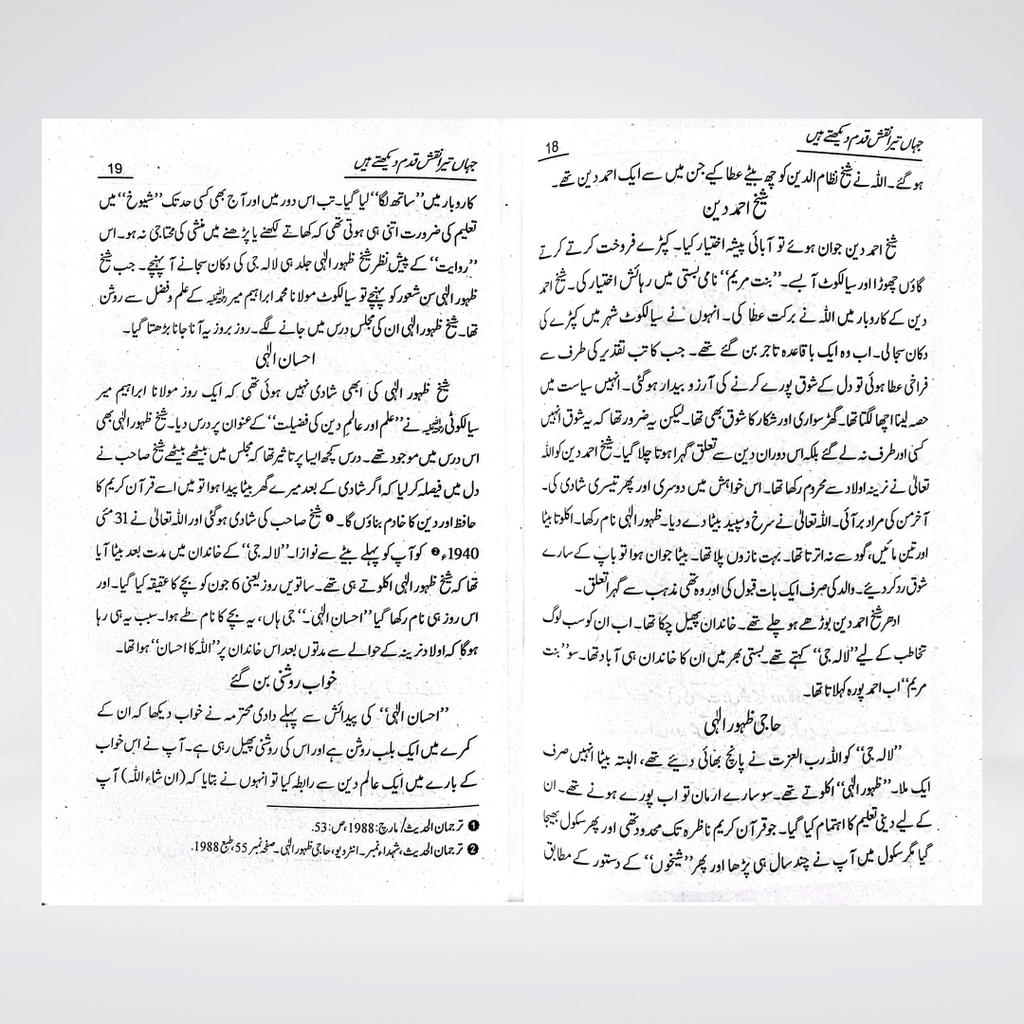 جہاں تیرا نقش قدم دیکھتے ہیں
18
ہو گئے۔ اللہ نے شیخ نظام الدین کو چھ بیٹے عطا کیے جن میں سے ایک احمد دین تھے۔
شیخ احمد دین
شیخ احمد دین جوان ہوئے تو آبائی پیشہ اختیار کیا۔ کپڑے فروخت کرتے کرتے
گاؤں چھوڑا اور سیالکوٹ آ بسے۔ ”بنت مریم“ نامی بستی میں رہائش اختیار کی۔ شیخ احمد
دین کے کاروبار میں اللہ نے برکت عطا کی۔ انہوں نے سیالکوٹ شہر میں کپڑے کی
دکان سجا لی۔ اب وہ ایک باقاعدہ تاجر بن گئے تھے۔ جب کاتب تقدیر کی طرف سے
فراخی عطا ہوئی تو دل کے شوق پورے کرنے کی آرزو بیدار ہو گئی۔ انہیں سیاست میں
حصہ لینا اچھا لگتا تھا۔ گھڑ سواری اور شکار کا شوق بھی تھا۔ لیکن یہ ضرور تھا کہ یہ شوق انہیں
کسی اور طرف نہ لے گئے بلکہ اس دوران دین سے تعلق گہرا ہوتا چلا گیا۔ شیخ احمد دین کو اللہ
تعالیٰ نے نرینہ اولاد سے محروم رکھا تھا۔ اس خواہش میں دوسری اور پھر تیسری شادی کی۔
آخر من کی مراد بر آئی۔ اللہ تعالیٰ نے سرخ و سپید بیٹا دے دیا۔ ظہور الٰہی نام رکھا۔ اکلوتا بیٹا
اور تین مائیں، گود سے نہ اترتا تھا۔ بہت نازوں پلا تھا۔ بیٹا جوان ہوا تو باپ کے سارے
شوق رد کر دیئے۔ والد کی صرف ایک بات قبول کی اور وہ تھی مذہب سے گہرا تعلق۔
ادھر شیخ احمد دین بوڑھے ہو چلے تھے۔ خاندان پھیل چکا تھا۔ اب ان کو سب لوگ
تخاطب کے لیے ”لالہ جی“ کہتے تھے۔ بستی بھر میں ان کا خاندان ہی آباد تھا۔ سو ”بنت
مریم“ اب احمد پورہ کہلاتا تھا۔
حاجی ظہور الٰہی
”لالہ جی“ کو اللہ رب العزت نے پانچ بھائی دیئے تھے، البتہ بیٹا انہیں صرف
ایک ملا۔ ”ظہور الٰہی“ اکلوتے تھے۔ سو سارے ارمان تو اب پورے ہونے تھے۔ ان
کے لیے دینی تعلیم کا اہتمام کیا گیا۔ جو قرآن کریم ناظرہ تک محدود تھی اور پھر سکول بھیجا
گیا مگر سکول میں آپ نے چند سال ہی پڑھا اور پھر ”شیخوں“ کے دستور کے مطابق
جہاں تیرا نقش قدم دیکھتے ہیں
19
کاروبار میں ”ساتھ لگا“ لیا گیا۔ تب اس دور میں اور آج بھی کسی حد تک ”شیوخ“ میں
تعلیم کی ضرورت اتنی ہی ہوتی تھی کہ کھاتے لکھنے یا پڑھنے میں منشی کی محتاجی نہ ہو۔ اس
”روایت“ کے پیش نظر شیخ ظہور الٰہی جلد ہی لالہ جی کی دکان سجانے آ پہنچے۔ جب شیخ
ظہور الٰہی سن شعور کو پہنچے تو سیالکوٹ مولانا محمد ابراہیم میر رحمہ اللہ کے علم و فضل سے روشن
تھا۔ شیخ ظہور الٰہی ان کی مجلس درس میں جانے لگے۔ روز بروز یہ آنا جانا بڑھتا گیا۔
احسان الٰہی
شیخ ظہور الٰہی کی ابھی شادی نہیں ہوئی تھی کہ ایک روز مولانا ابراہیم میر
سیالکوٹی رحمہ اللہ نے ”علم اور عالمِ دین کی فضیلت“ کے عنوان پر درس دیا۔ شیخ ظہور الٰہی بھی
اس درس میں موجود تھے۔ درس کچھ ایسا پر تاثیر تھا کہ مجلس میں بیٹھے بیٹھے شیخ صاحب نے
دل میں فیصلہ کر لیا کہ اگر شادی کے بعد میرے گھر بیٹا پیدا ہوا تو میں اسے قرآن کریم کا
حافظ اور دین کا خادم بناؤں گا۔ ❶ شیخ صاحب کی شادی ہو گئی اور اللہ تعالیٰ نے 31 مئی
1940ء ❷ کو آپ کو پہلے بیٹے سے نوازا۔ ”لالہ جی“ کے خاندان میں مدت بعد بیٹا آیا
تھا کہ شیخ ظہور الٰہی اکلوتے ہی تھے۔ ساتویں روز یعنی 6 جون کو بچے کا عقیقہ کیا گیا۔ اور
اس روز ہی نام رکھا گیا ”احسان الٰہی۔“ جی ہاں، یہ بچے کا نام طے ہوا۔ سبب یہ ہی رہا
ہو گا کہ اولاد نرینہ کے حوالے سے مدتوں بعد اس خاندان پر ”اللہ کا احسان“ ہوا تھا۔
خواب روشنی بن گئے
”احسان الٰہی“ کی پیدائش سے پہلے دادی محترمہ نے خواب دیکھا کہ ان کے
کمرے میں ایک بلب روشن ہے اور اس کی روشنی پھیل رہی ہے۔ آپ نے اس خواب
کے بارے میں ایک عالم دین سے رابطہ کیا تو انہوں نے بتایا کہ (ان شاء اللہ) آپ
❶ ترجمان الحدیث/ مارچ: 1988ء، ص: 53.
❷ ترجمان الحدیث، شہداء نمبر۔ انٹرویو، حاجی ظہور الٰہی۔ صفحہ نمبر 55، طبع 1988.